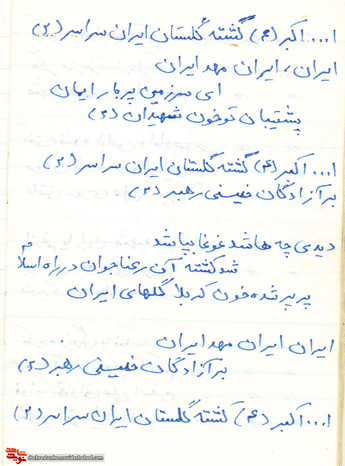 ا...اکبر (۴) گشته گلستان ایران سراسر (۲)
ایران، ایران مهد ایران
ای سرزمین پربار ایمان
پشتیبان تو خون شهیدان (۲)
ا...اکبر (۴) گشته گلستان ایران سراسر (۲)
بر آزادگان خمینی رهبر (۲)
دیدی چه ها شد غوغا بپا شد
شد کشته آن رعنا جوان در راه اسلام
پرپر شده خون کربلا گلهای ایران
ایران ایران مهد ایران
بر آزادگان خمینی رهبر (۲)
ا...اکبر (۴) گشته گلستان ایران سراسر (۲)